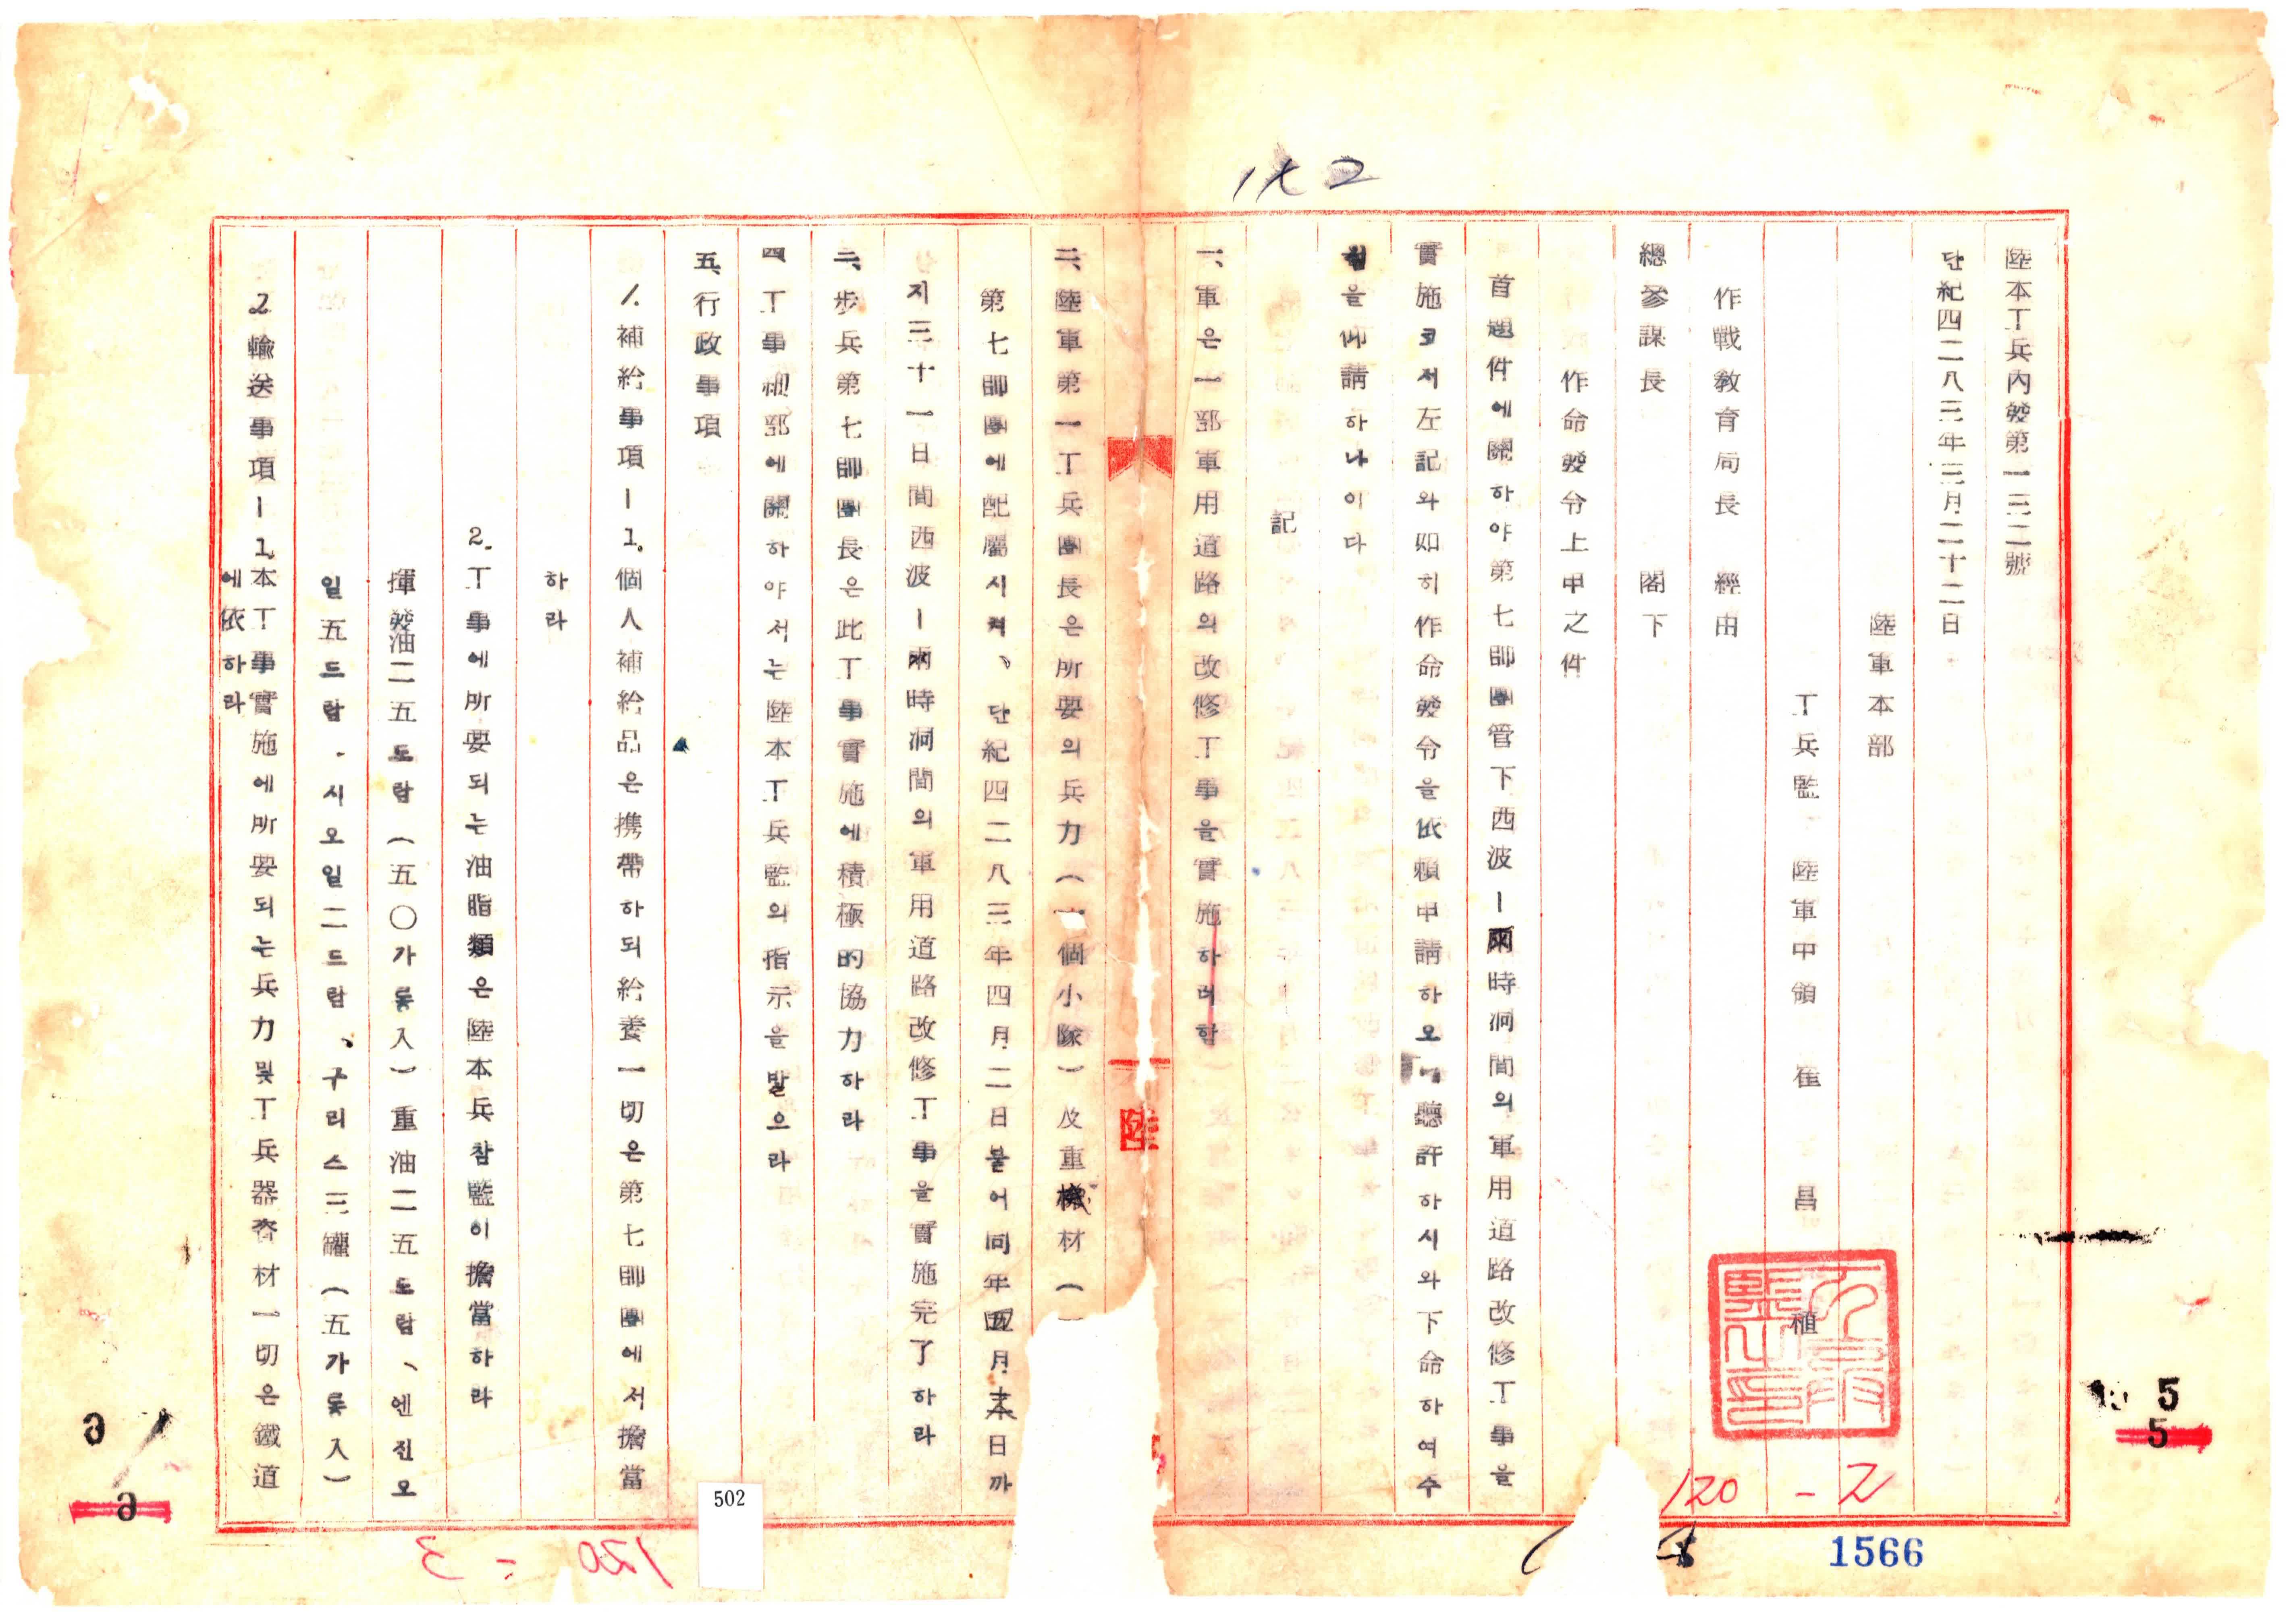 陸本工兵內發第一三二號
단紀四二八三年三月二十二日
陸軍本部
工兵監 陸軍中領 崔昌植
作戰教育局長 經由
總參謀長 閣下
作命發令上申之件
首題件에關하야第七師團管下西波ー爾時洞間의軍用道路改修工事을
實施코저左記와如히作命發令을依賴申請하오니聽許하시와下命하여수
웜을仰請하나이다
記
一、軍은一部軍用道路의改修工事을實施하려함
二、陸軍第一工兵團長은所要의兵力(一個小隊)及重機材(
第七師團에配屬시켜、단紀四二八三年四月二日붙어同年四月本日까
지三十一日間西波ー爾時洞間의軍用道路改修工事을實施完了하라
三、步兵第七師團長은此工事實施에積極的協力하라
四、工事細部에關하야서는陸本工兵監의指示을받으라
五、行政事項
1.補給事項ー1.個人補給品은携帶하되給養一切은第七師團에서擔當
하라
2.工事에所要되는油脂類은陸本兵참監이擔當하라
揮發油二五도람(五〇가롱入)重油二五도람、엔진오
일五드람.시오일二드람、구리스三罐(五가롱入)
2輸送事項ー1.本工事實施에所要되는兵力및工兵器資材一切은鐵道
에依하라
陸
172
120-2
1566
5
5
6
6
502
120-3